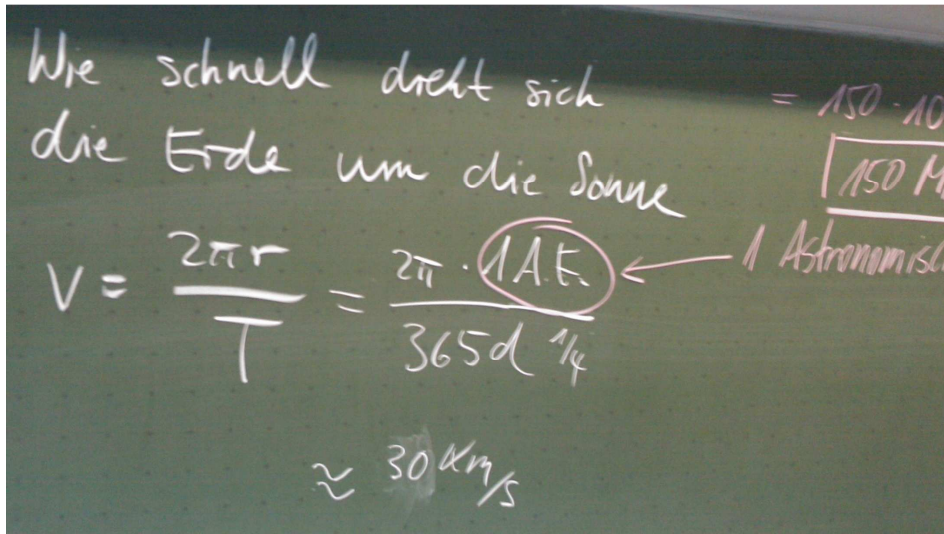 Wie schnell dreht sich
die Erde um die Sonne
= 150 · 10
150 M
V = 2πr / T = 2π · 1 A.E. / 365d 1/4
← 1 Astronomisch
≈ 30 Km/s